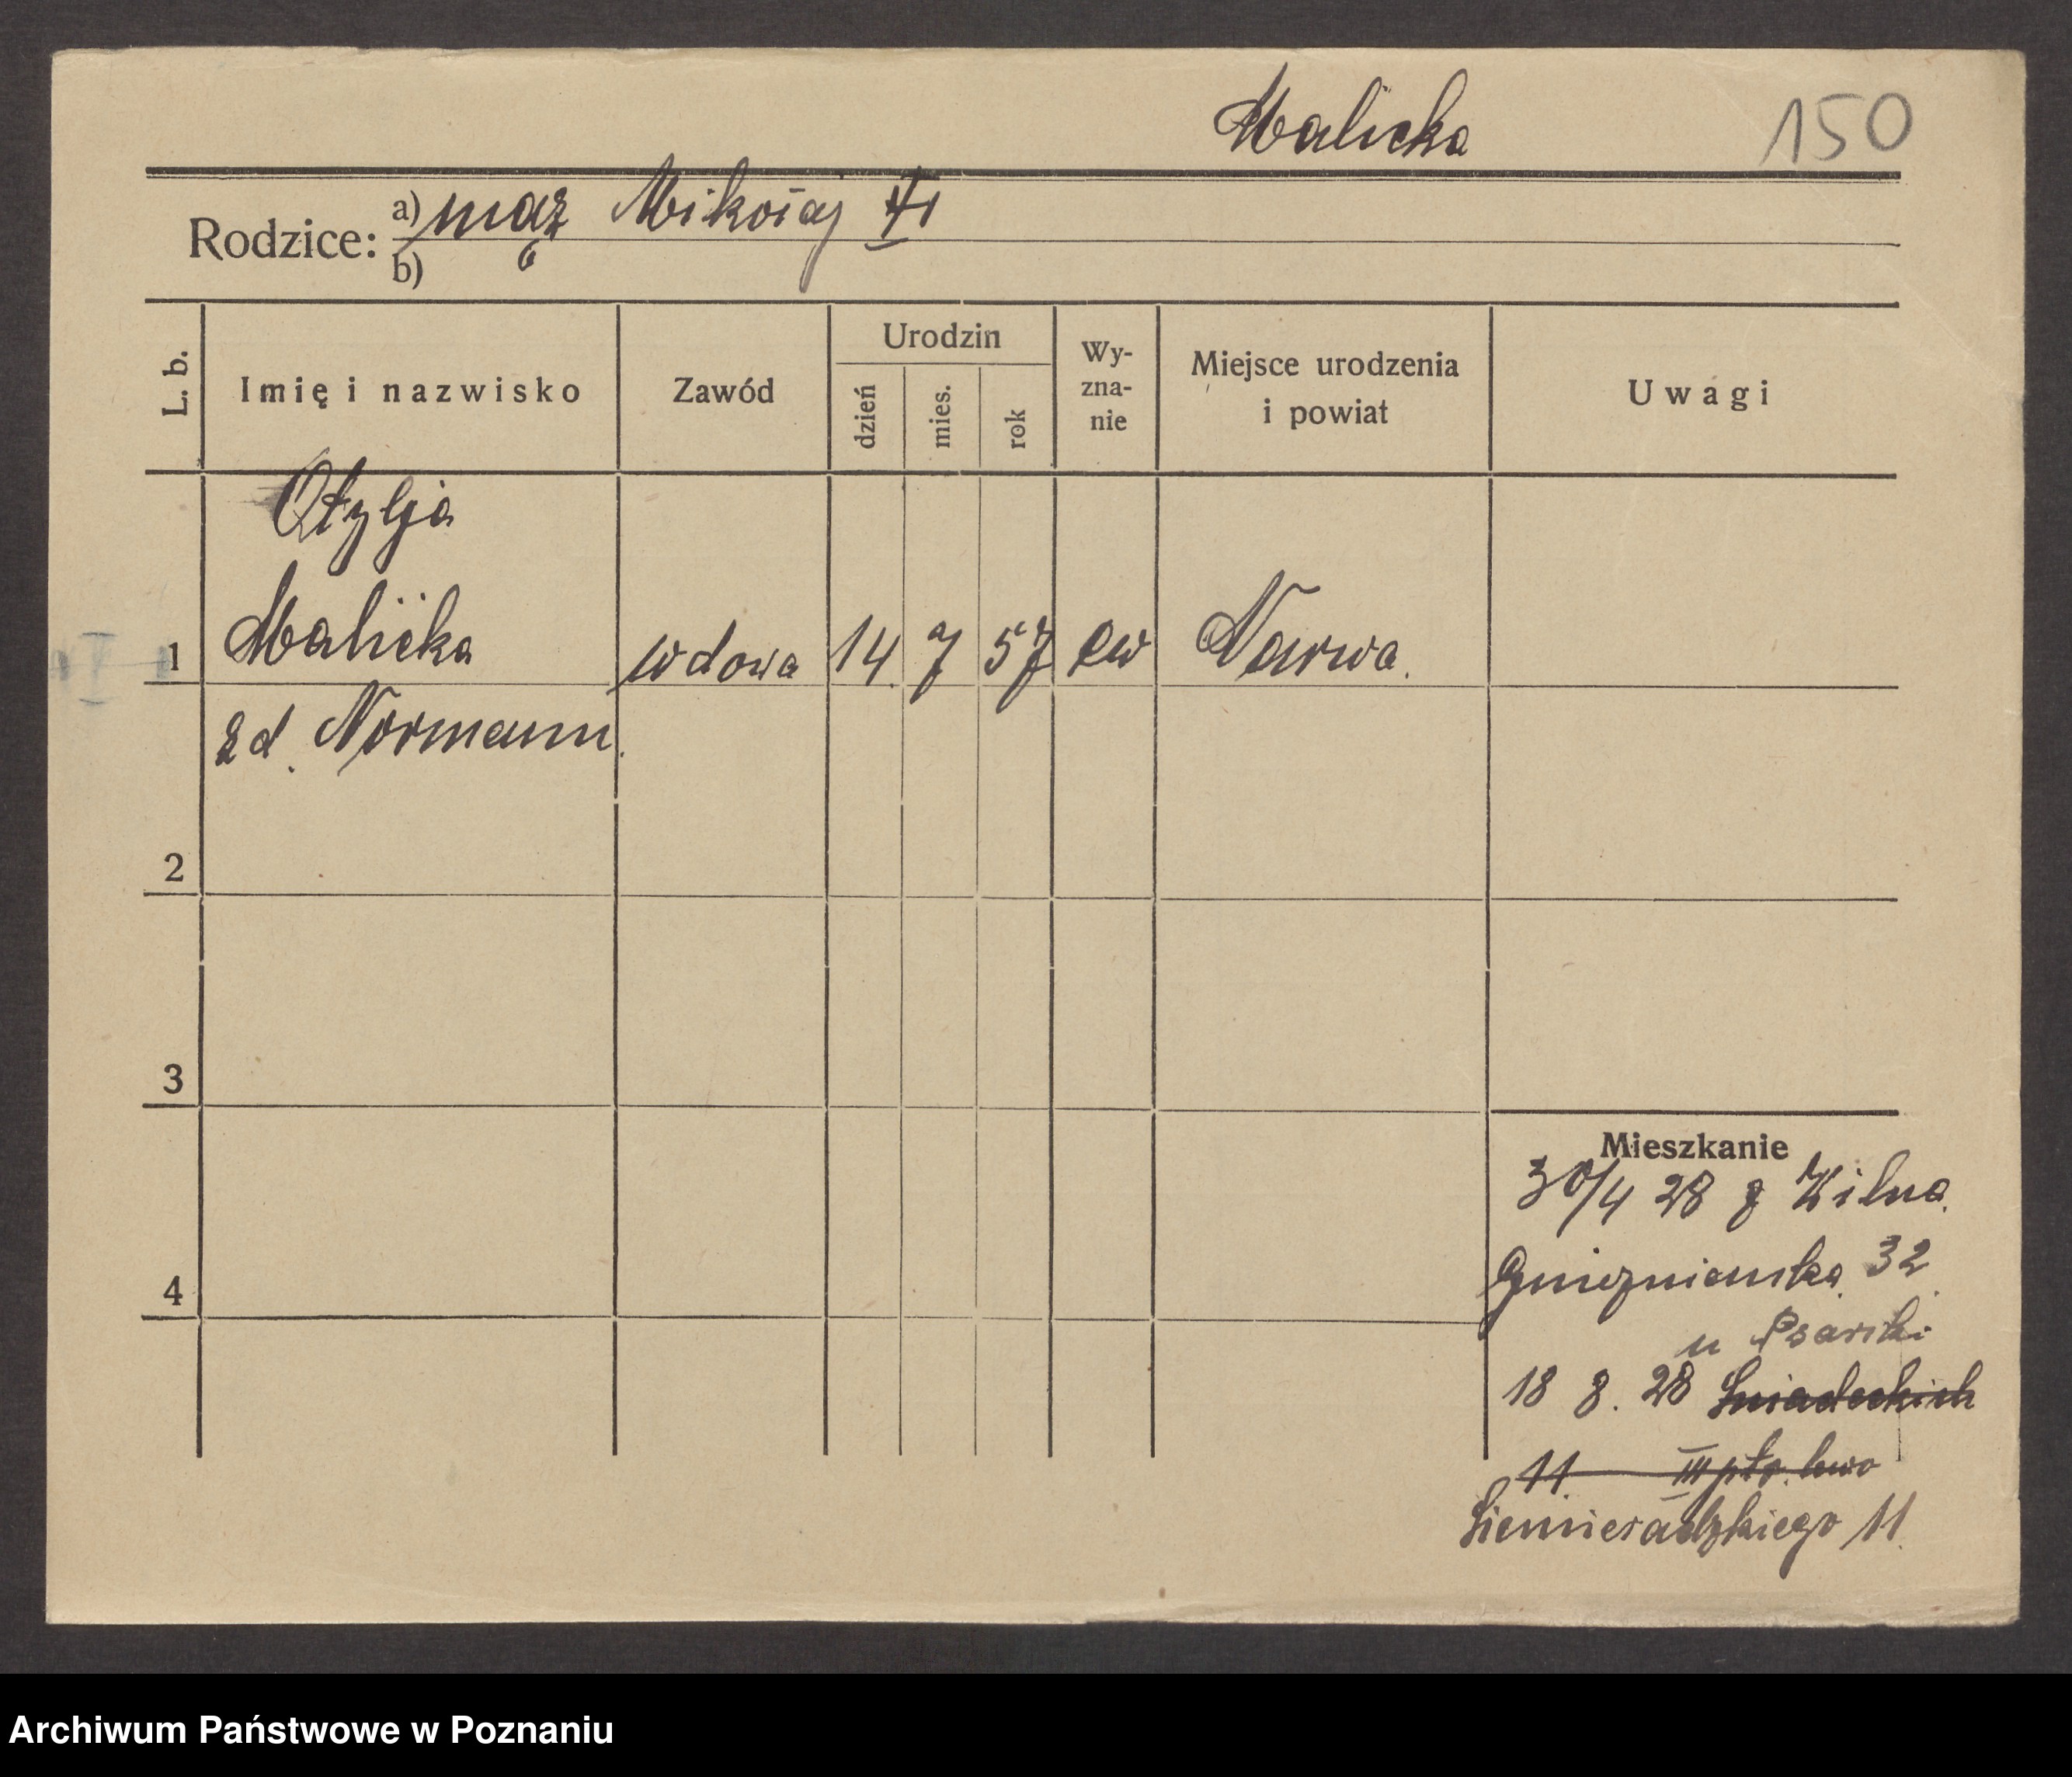 Malicka 150
Rodzice: a) mąż Mikołaj
b)
L. b. Imię i nazwisko Zawód Urodzin dzień mies. rok Wy-zna-nie Miejsce urodzenia i powiat Uwagi
Otylja
1 Malicka wdowa 14 7 57 ew Narwa.
zd. Normann.
2
3
4
Mieszkanie
30/4 28 z Wilna.
Gnieznienska 32
u Psarski
18 8. 28 Sniadeckich
11. III ptr. lewo
Siemieradzkiego 11.
Archiwum Państwowe w Poznaniu